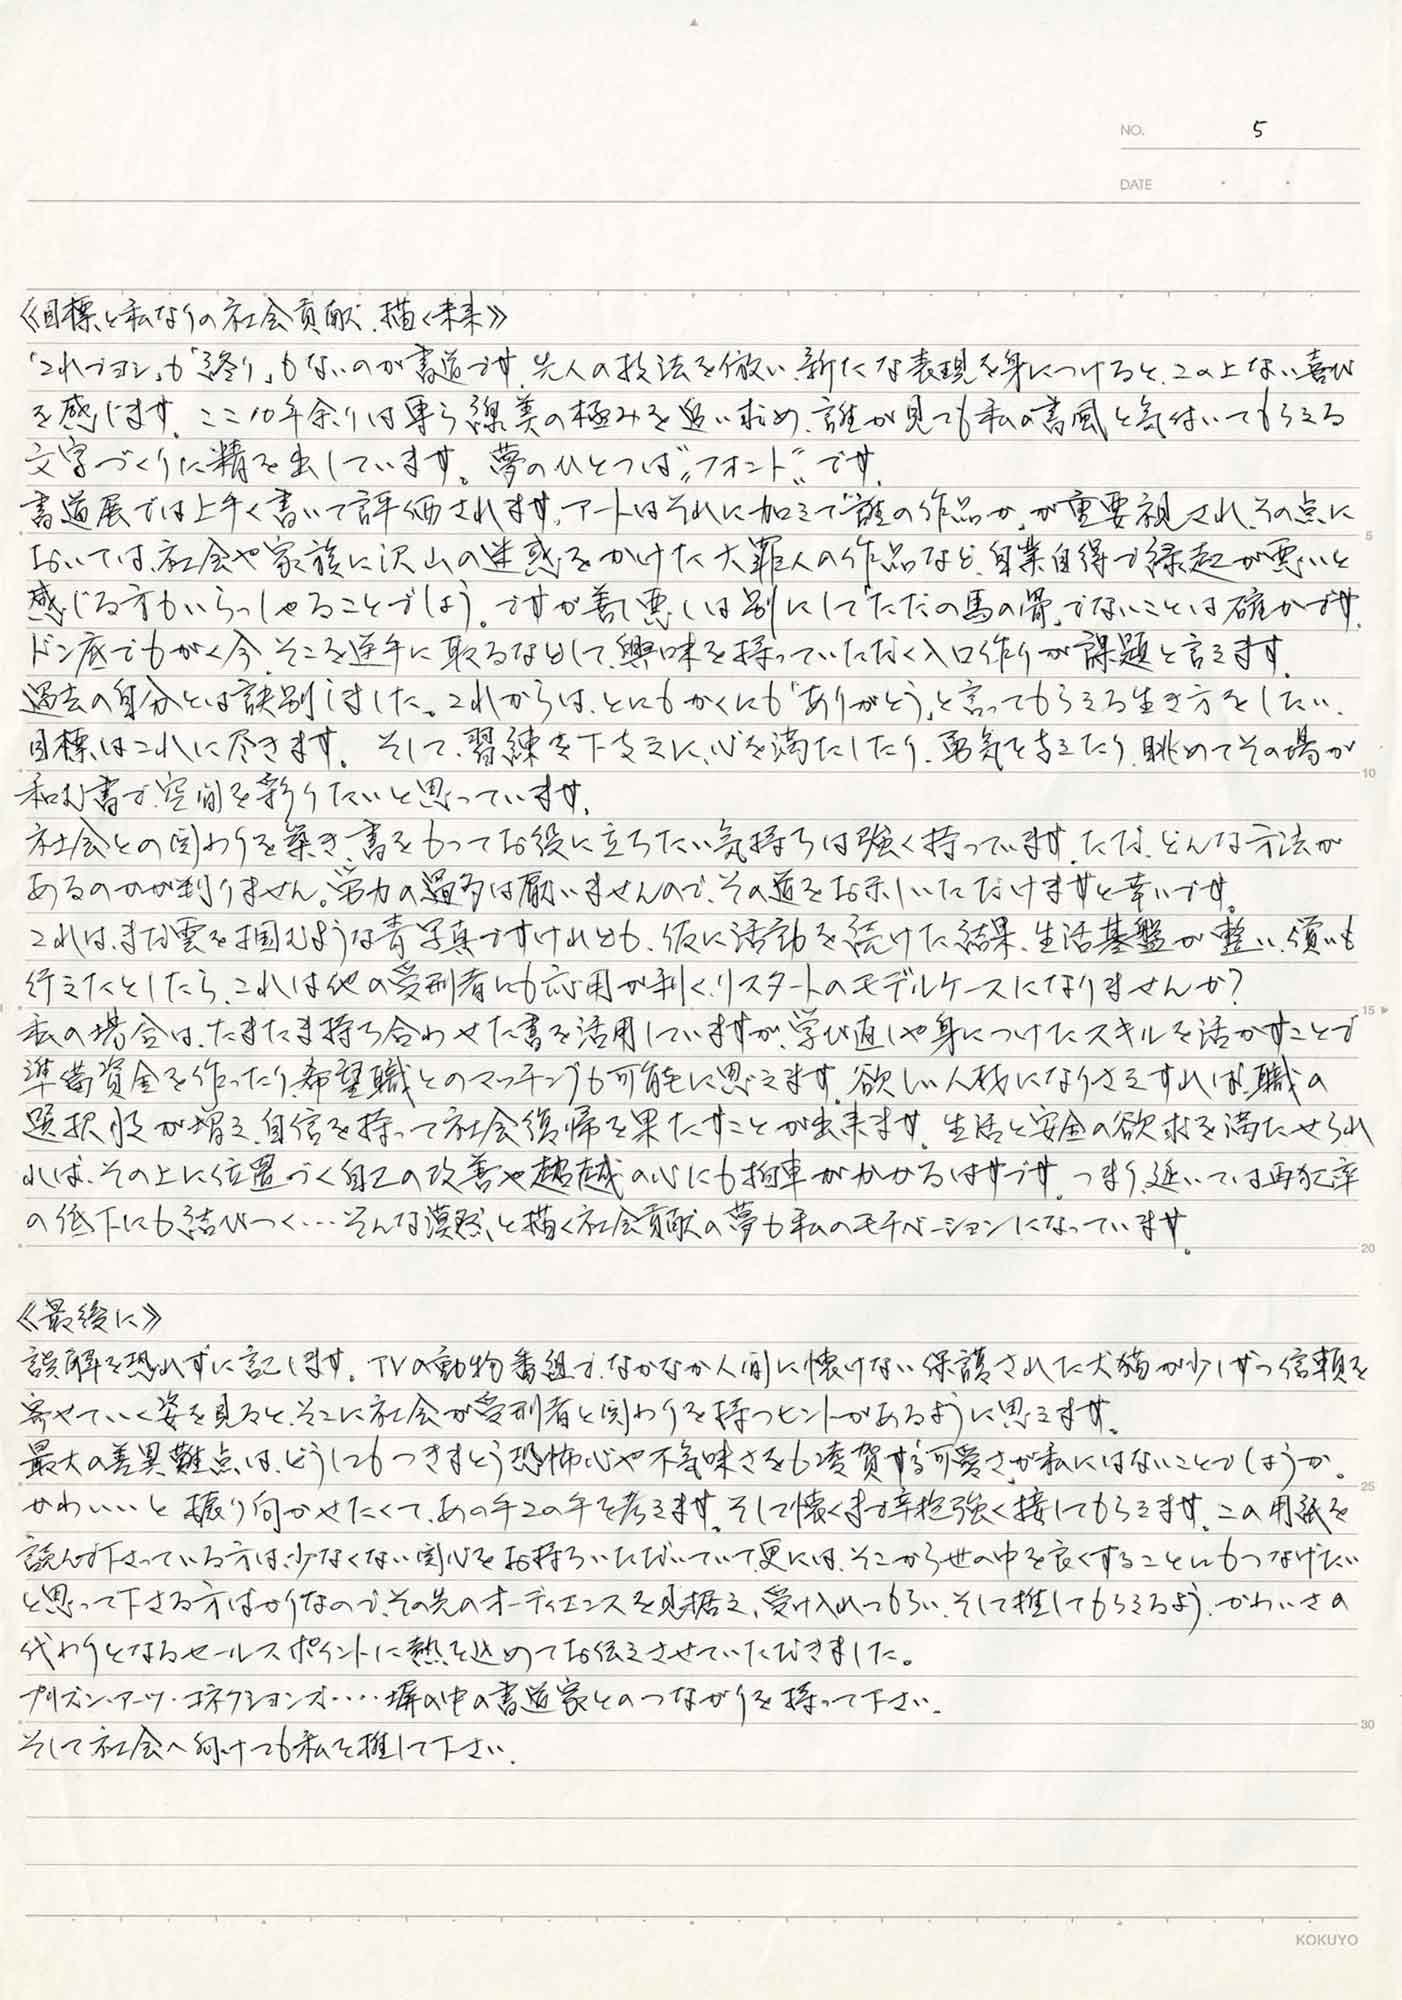 NO. 5
DATE
《目標と私なりの社会貢献、描く未来》
「これでヨシ」も「終り」もないのが書道です。先人の技法を倣い、新たな表現を身につけると、この上ない喜び
を感じます。ここ10年余りは専ら線美の極みを追い求め、誰が見ても私の書風と気付いてもらえる
文字づくりに精を出しています。夢のひとつは“フォント”です。
書道展では上手く書いて評価されます。アートはそれに加えて「誰の作品か」が重要視され、その点に
おいては、社会や家族に沢山の迷惑をかけた大罪人の作品など、自業自得で縁起が悪いと
感じる方もいらっしゃることでしょう。ですが善し悪しは別にして「ただの馬の骨」でないことは確かです。
ドン底でもがく今、そこを逆手に取るなどして、興味を持っていただく入口作りが課題と言えます。
過去の自分とは訣別しました。これからは、とにもかくにも「ありがとう」と言ってもらえる生き方をしたい、
目標はこれに尽きます。そして、習練を下支えに、心を満たしたり、勇気を与えたり、眺めてその場が
和む書で、空間を彩りたいと思っています。
社会との関わりを築き、書をもってお役に立ちたい気持ちは強く持っています。ただ、どんな方法が
あるのかが判りません。労力の過多は厭いませんので、その道をお示しいただけますと幸いです。
これは、まだ雲を掴むような青写真ですけれども、仮に活動を続けた結果、生活基盤が整い、償いも
行えたとしたら、これは他の受刑者にも応用が利く、リスタートのモデルケースになりませんか?
私の場合は、たまたま持ち合わせた書を活用していますが、学び直しや身につけたスキルを活かすことで
準備資金を作ったり、希望職とのマッチングも可能に思えます。欲しい人材になりさえすれば、職の
選択肢が増え、自信を持って社会復帰を果たすことが出来ます。生活と安全の欲求を満たせられ
れば、その上に位置づく自己の改善や超越の心にも拍車がかかるはずです。つまり、延いては再犯率
の低下にも結びつく・・・そんな漠然と描く社会貢献の夢も私のモチベーションになっています。
《最後に》
誤解を恐れずに記します。TVの動物番組で、なかなか人間に懐けない保護された犬猫が少しずつ信頼を
寄せていく姿を見ると、そこに社会が受刑者と関わりを持つヒントがあるように思えます。
最大の差異難点は、どうしてもつきまとう恐怖心や不気味さをも凌賀する「可愛さ」が私にはないことでしょうか。
かわいいと振り向かせたくて、あの手この手を考えます。そして懐くまで辛抱強く接してもらえます。この用紙を
読んで下さっている方は、少なくない関心をお持ちいただいていて、更には、そこから世の中を良くすることにもつなげたい
と思って下さる方ばかりなので、その先のオーディエンスを見据え、受け入れてもらい、そして推してもらえるよう、かわいさの
代わりとなるセールスポイントに熱を込めてお伝えさせていただきました。
プリズン・アーツ・コネクションズ・・・・塀の中の書道家とのつながりを持って下さい。
そして社会へ向けても私を推して下さい。
5
10
15
20
25
30
KOKUYO